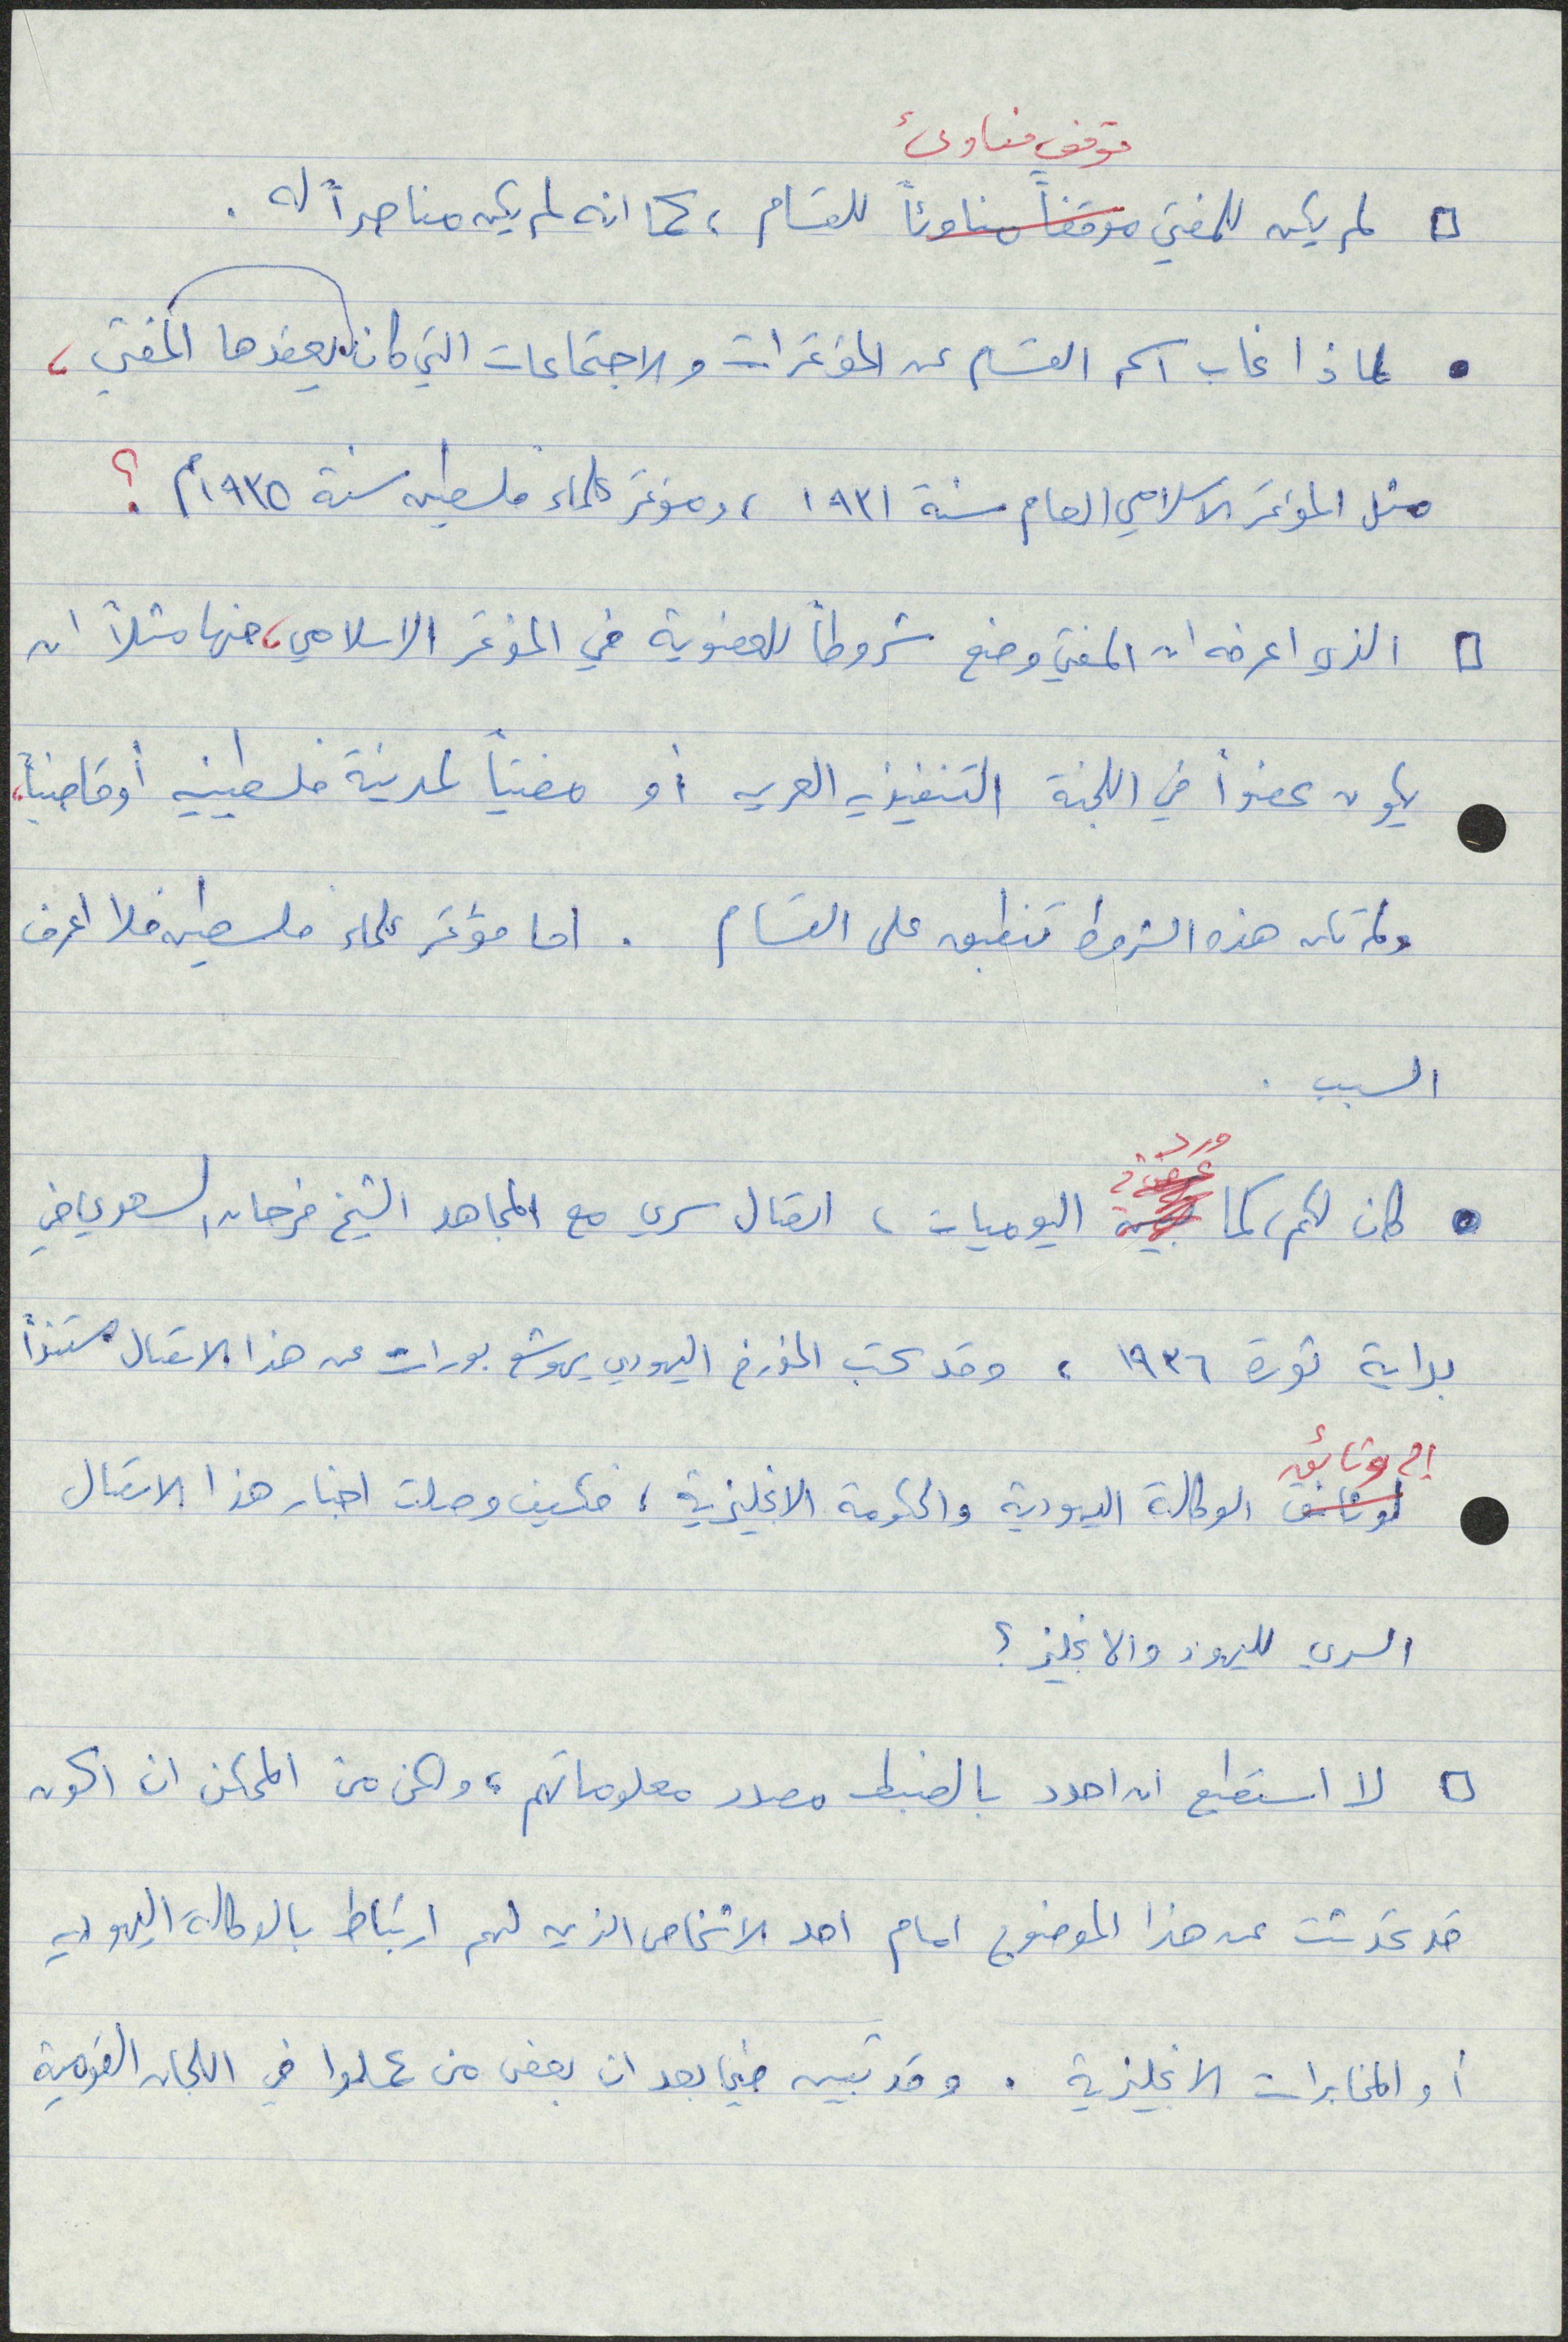 موقف مناوئ
□ لم يكن للمفتي موقفاً مناوئاً للقسام ، كما انه لم يكن مناصراً له .
• لماذا غاب اسم القسام عن المؤتمرات والاجتماعات التي كان يعقدها المفتي ،
مثل المؤتمر الاسلامي العام سنة ١٩٣١ ، ومؤتمر علماء فلسطين سنة ١٩٣٥م ؟
□ الذي اعرفه ان المفتي وضع شروطاً للعضوية في المؤتمر الاسلامي ، منها مثلاً ان
يكون عضواً في اللجنة التنفيذيه العربيه أو مفتياً لمدينة فلسطينيه أو قاضياً ،
ولم تكن هذه الشروط تنطبق على القسام . اما مؤتمر علماء فلسطين فلا اعرف
السبب .
ورد
في
• كان لكم ، كما اليوميات ، اتصال سري مع المجاهد الشيخ فرحان السعدي في
بداية ثورة ١٩٣٦ ، وقد كتب المؤرخ اليهودي يهوشع بورات عن هذا الاتصال مستنداً
إلى وثائق
لوثائق الوكالة اليهودية والحكومة الانجليزية ، فكيف وصلت اخبار هذا الاتصال
السري لليهود والانجليز ؟
□ لا استطيع ان احدد بالضبط مصدر معلوماتهم ، ولكن من الممكن ان اكون
قد تحدثت عن هذا الموضوع امام احد الاشخاص الذين لهم ارتباط بالوكالة اليهوديه
أو المخابرات الانجليزية . وقد تبين فيما بعد ان بعض من عملوا في اللجان القومية